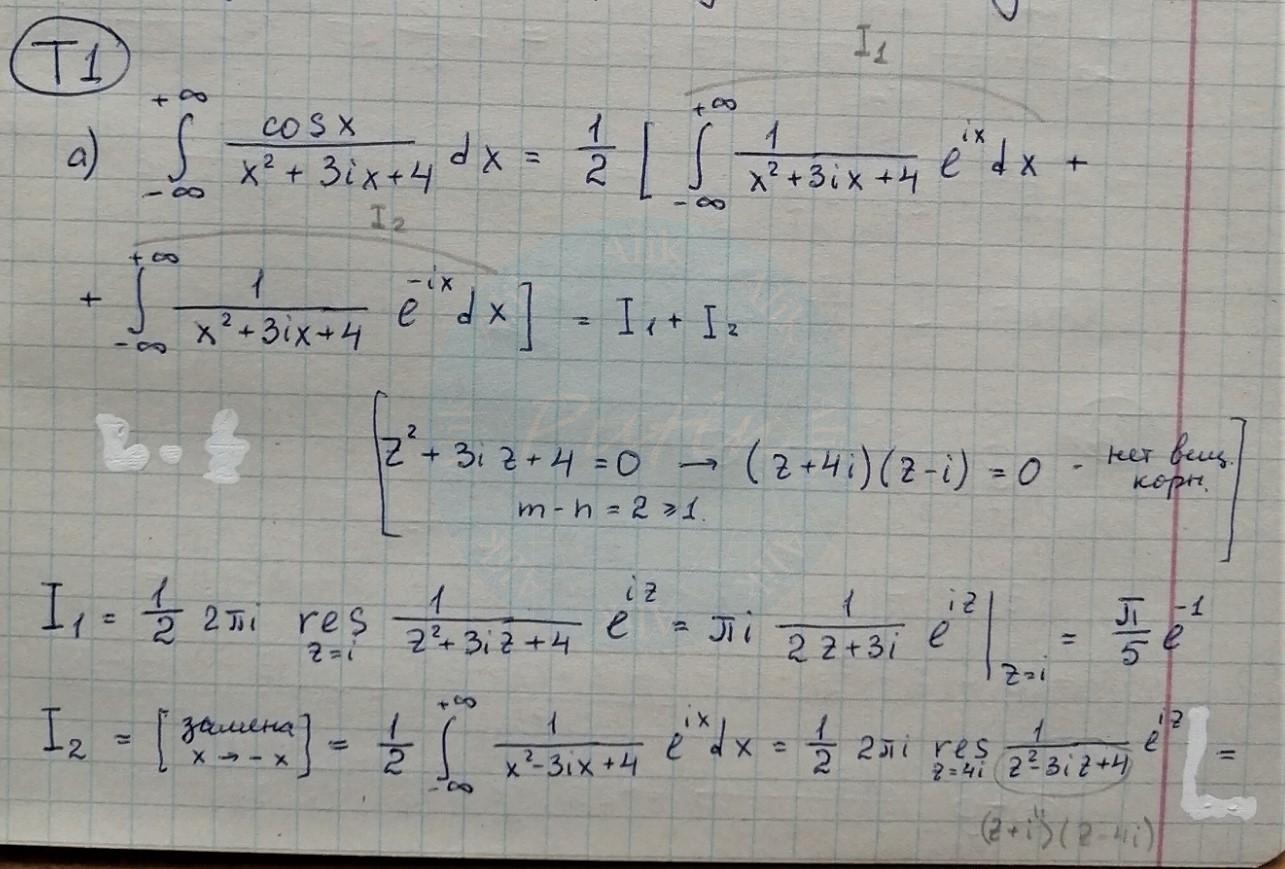 T1
I₁
a) ∫_{-∞}^{+∞} cos x / (x² + 3ix + 4) dx = 1/2 [ ∫_{-∞}^{+∞} 1 / (x² + 3ix + 4) e^{ix} dx +
I₂
+ ∫_{-∞}^{+∞} 1 / (x² + 3ix + 4) e^{-ix} dx ] = I₁ + I₂
[ z² + 3iz + 4 = 0 → (z + 4i)(z - i) = 0 - нет вещ. корн.
m - n = 2 ⩾ 1. ]
I₁ = 1/2 2πi res_{z=i} 1 / (z² + 3iz + 4) e^{iz} = πi 1 / (2z + 3i) e^{iz} |_{z=i} = π/5 e^{-1}
I₂ = [ замена x → -x ] = 1/2 ∫_{-∞}^{+∞} 1 / (x² - 3ix + 4) e^{ix} dx = 1/2 2πi res_{z=4i} 1 / (z² - 3iz + 4) e^{iz} =
(z + i)(z - 4i)